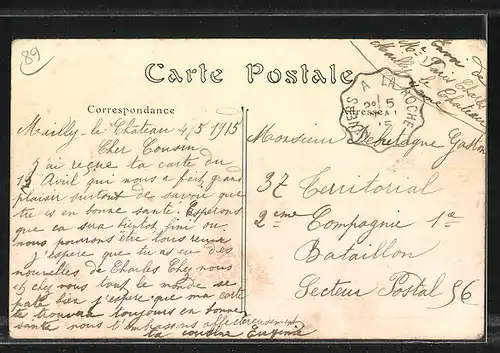 89
Carte Postale
Correspondance
Adresse
Mailly-le-Château 4/5 1915
Cher Cousin
j'ai reçue ta carte du
15 Avril qui nous a fait grand
plaisir surtout de savoir que
tu es en bonne santé. Esperons
que ca sera bientot fini ou
nous pourrons être tous reunis
j'espere que tu as eu des
nouvelles de Charles Chez nous
et chez vous tout le monde se
porte bien j'espere que ma carte
te trouvera toujours en bonne
santé nous t'embrassons affectueusement
ta cousine Eugénie
A LAROCHE
5
15
Envoi de
Mailly le Château
Yonne
Monsieur Debretagne Gaston
37 Territorial
2eme Compagnie 1e
Bataillon
Secteur Postal 96